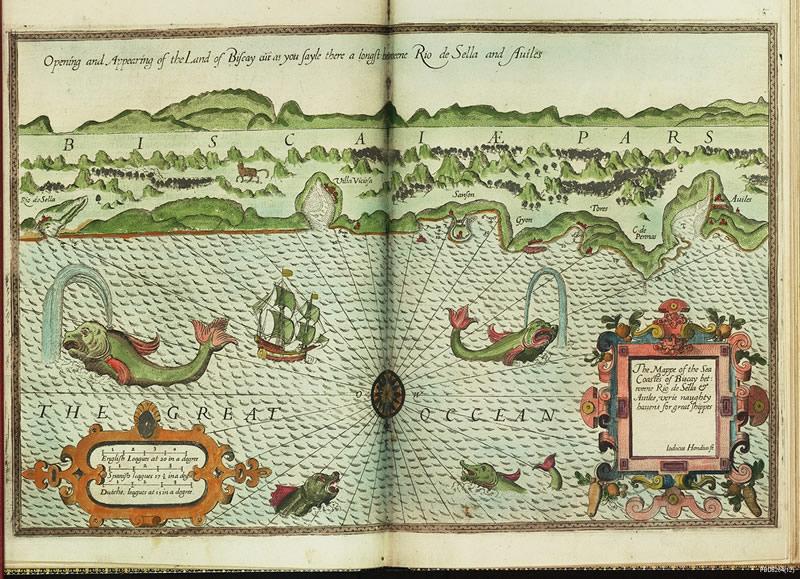 Opening and Appearing of the Land of Biscay as you sayle there a longst betweene Rio de Sella and Auiles
B I S C A I Æ P A R S
Rio de Sella
Villa Viciosa
Sanson
Gyon
Tores
C. de Pennas
Auiles
THE GREAT OCCEAN
The Mappe of the Sea
Coastes of Biscay bet:
weene Rio de Sella &
Auiles, verie naughty
havens for great shippes
Iodocus Hondius fe
English Leagues at 20 in a degree
Spanish leagues 17 ½ in a degree
Dutche leagues at 15 in a degree